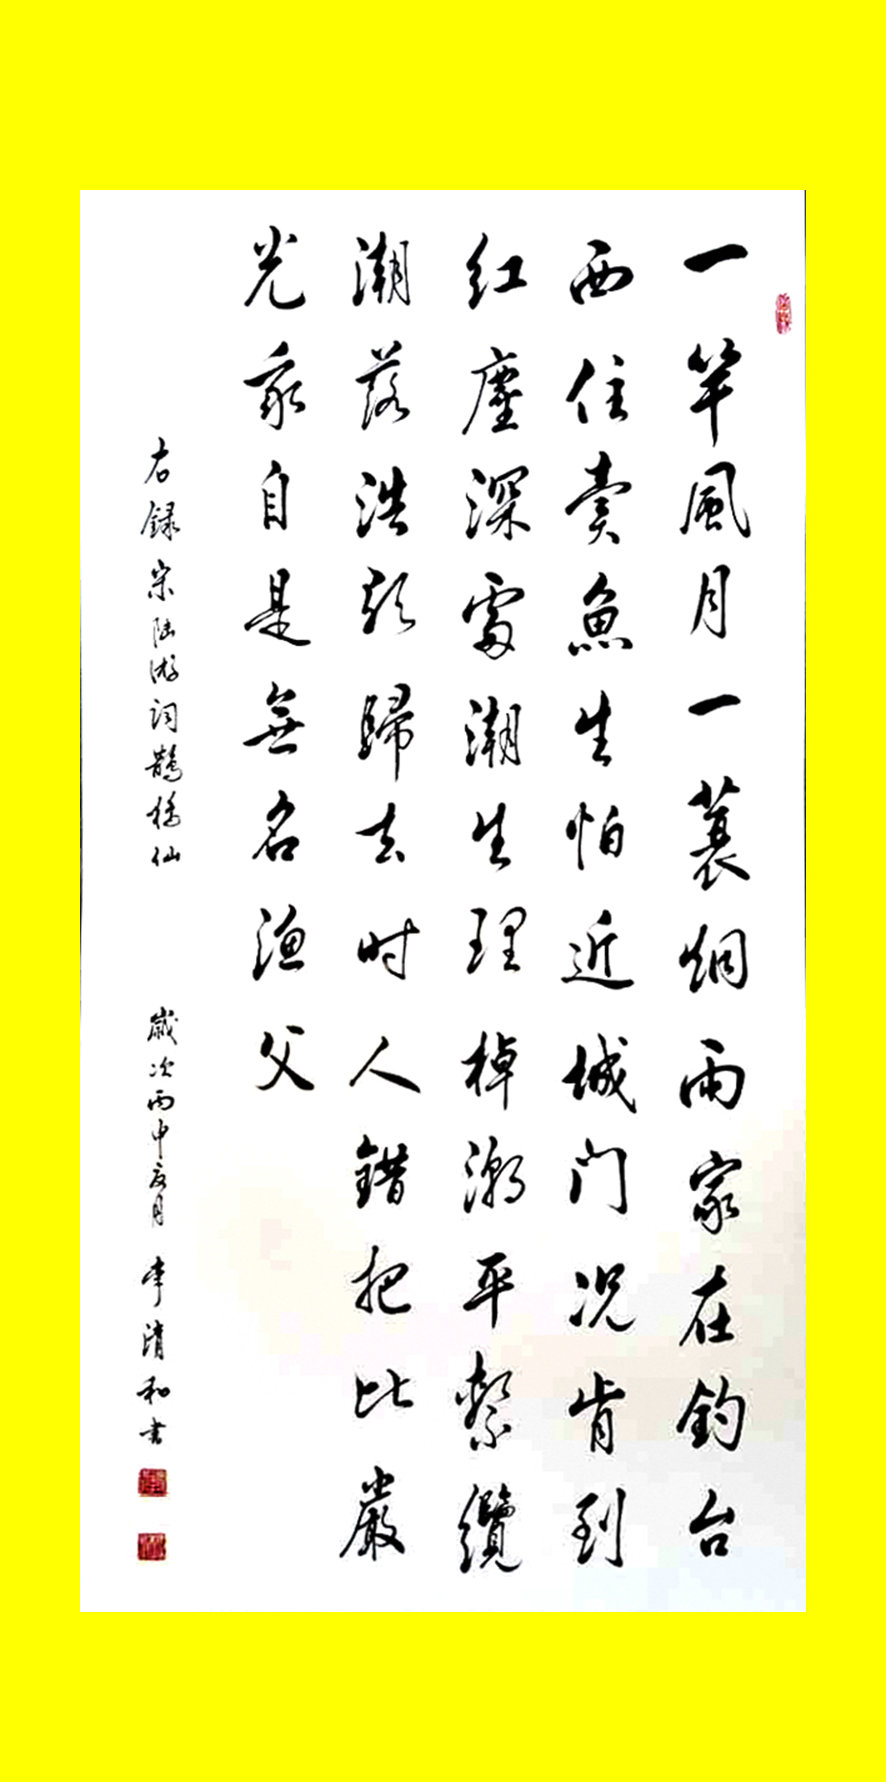 一竿風月一蓑烟雨家在釣台
西住賣魚生怕近城门况肯到
红塵深處潮生理棹潮平繫纜
潮落浩歌歸去时人錯把比嚴
光我自是無名渔父
右録宋陆游词鹊橋仙
歲次丙申 月 李清和书